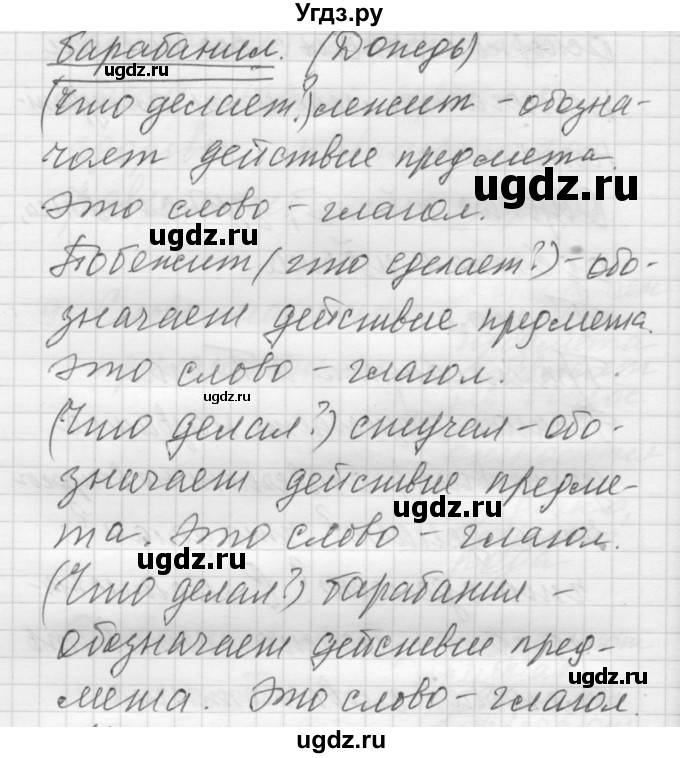 Угдз.ру
барабанил. (Дождь)
ugdz.ru
ugdz.ru
(Что делает?) лежит - обозна-
чает действие предмета.
ugdz.ru
Это слово - глагол.
ugdz.ru
Побежит (что сделает?) - обо-
значает действие предмета.
Это слово - глагол.
ugdz.ru
(Что делал?) стучал - обо-
значает действие предме-
ugdz.ru
та. Это слово - глагол.
ugdz.ru
(Что делал?) барабанил -
обозначает действие пред-
ugdz.ru
мета. Это слово - глагол.
ugdz.ru
ugdz.ru